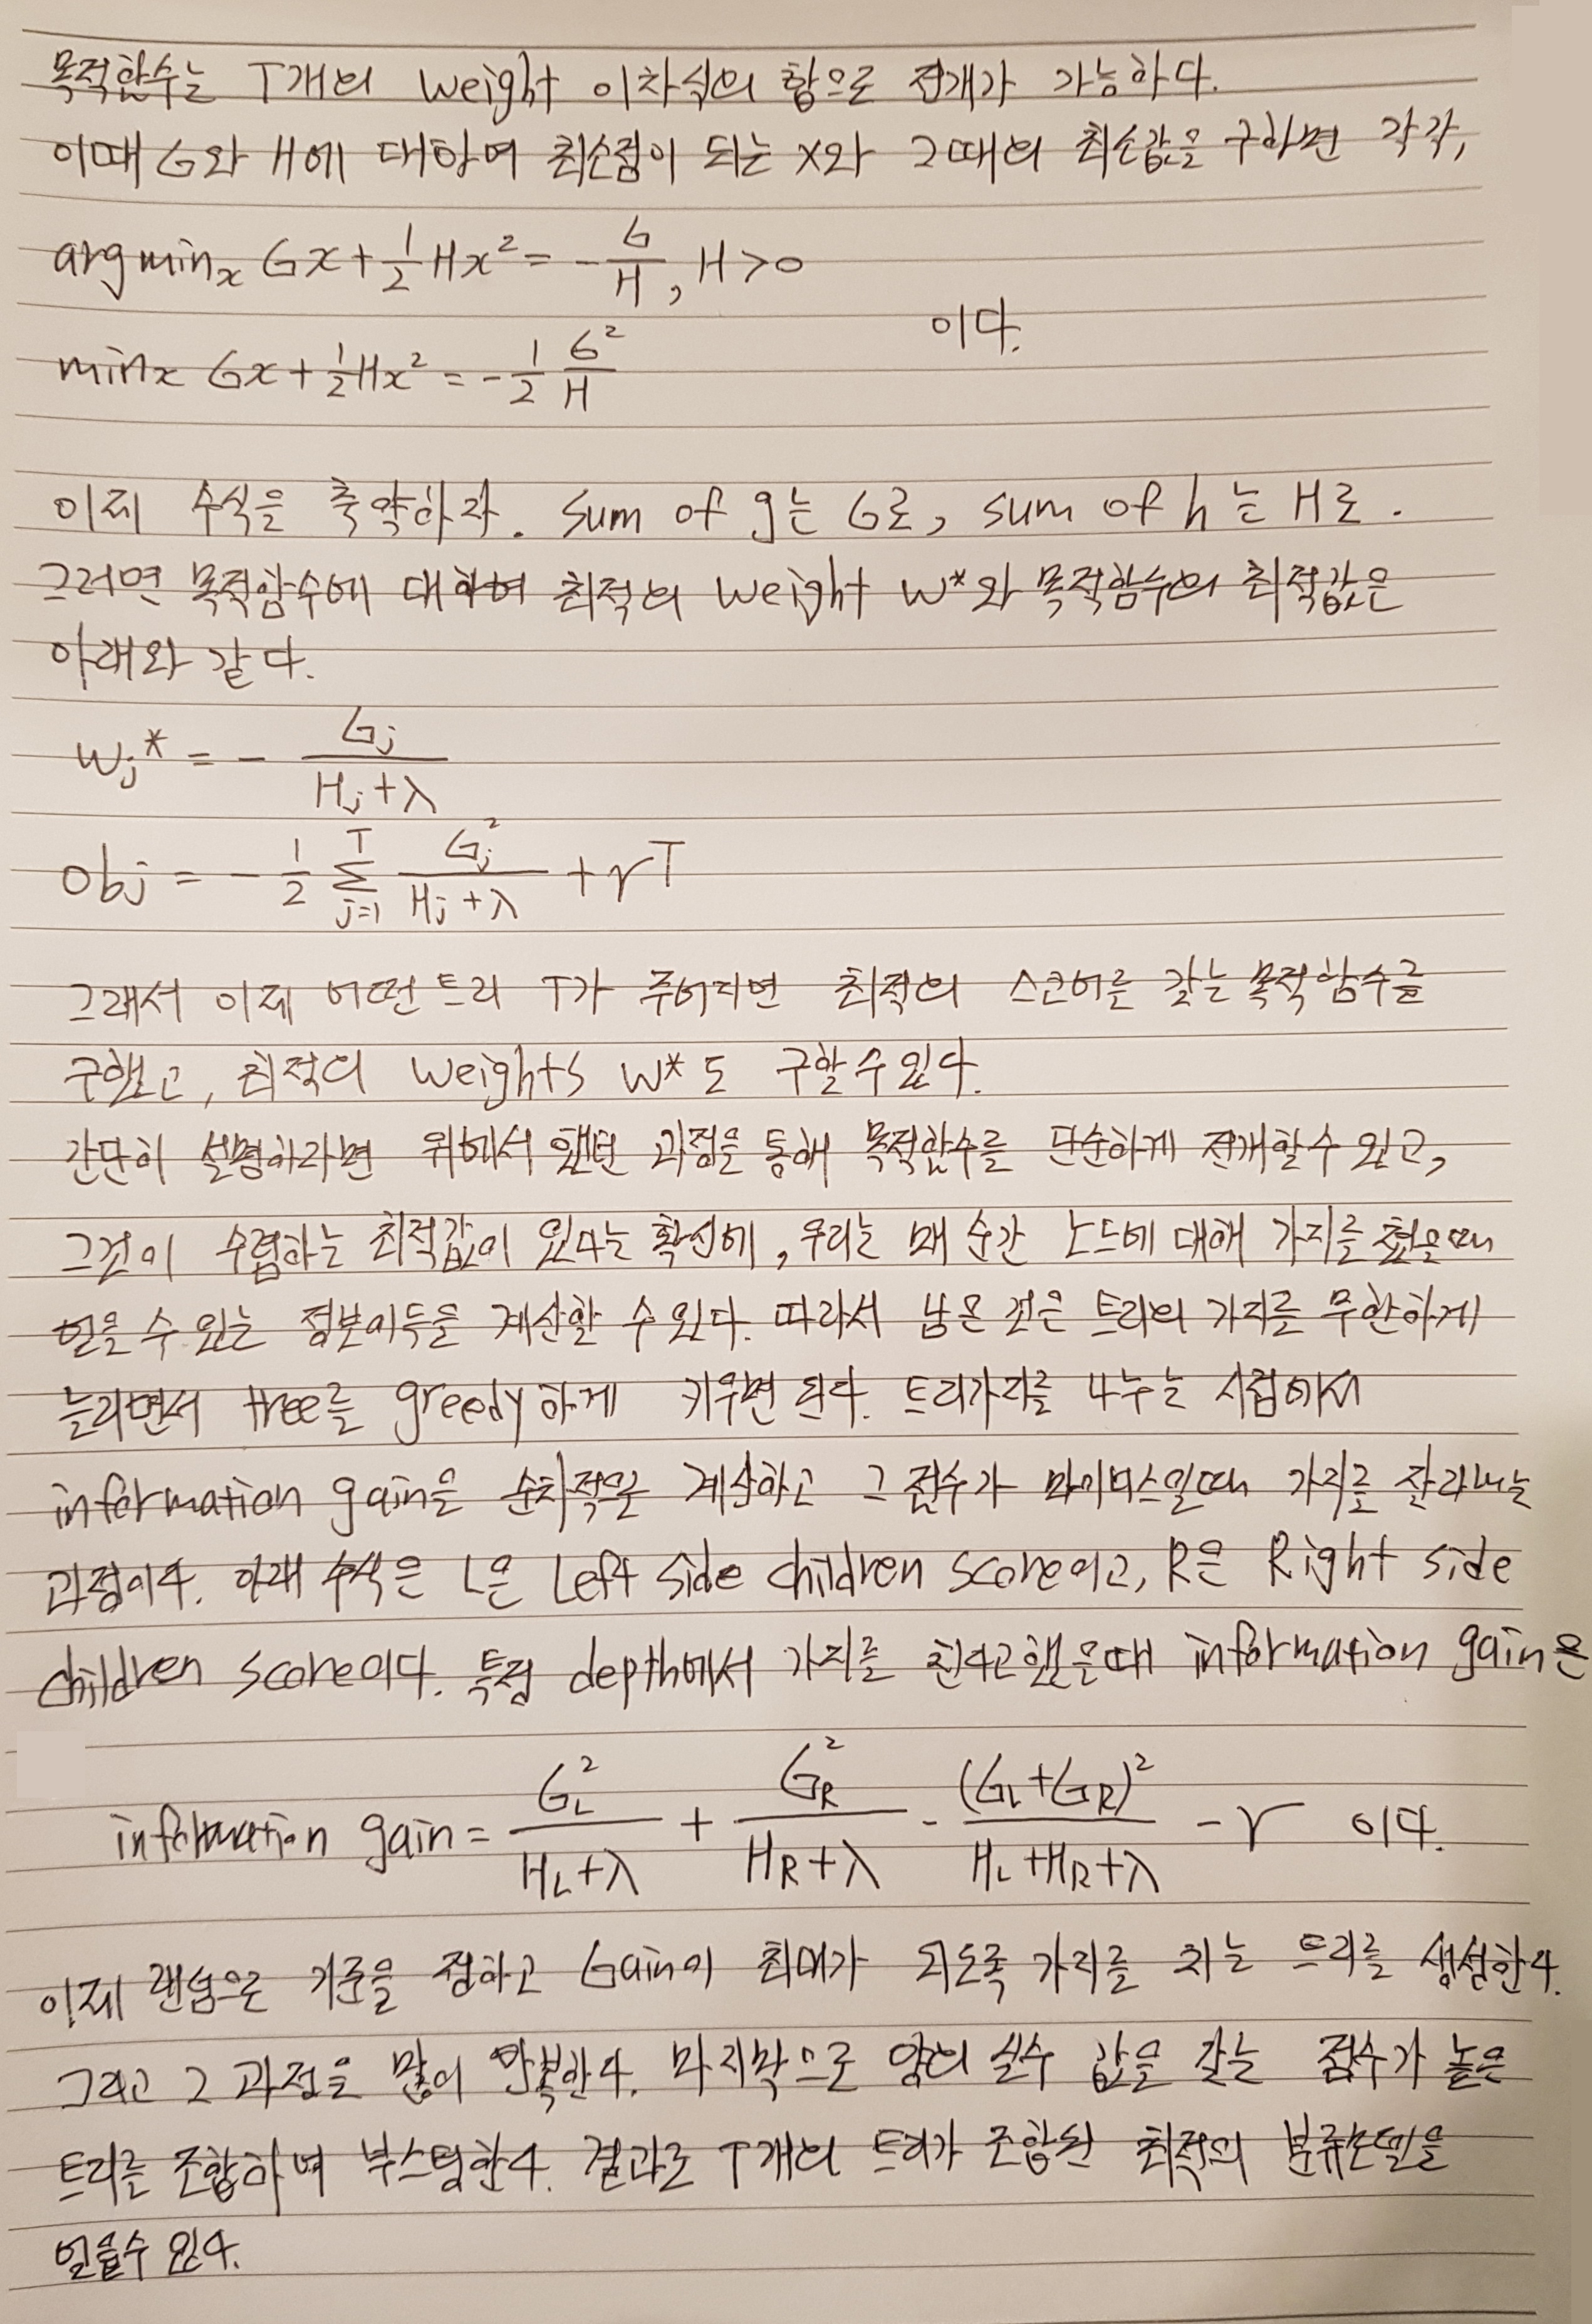 목적함수는 T개의 weight 이차식의 합으로 전개가 가능하다.
이때 G와 H에 대하여 최소점이 되는 x와 그때의 최솟값을 구하면 각각,
argminₓ Gx + 1/2 Hx² = - G/H, H > 0
이다.
minₓ Gx + 1/2 Hx² = - 1/2 G²/H
이제 수식을 축약하자. sum of g는 G로, sum of h는 H로.
그러면 목적함수에 대하여 최적의 weight w*와 목적함수의 최적값은
아래와 같다.
wⱼ* = - Gⱼ/(Hⱼ+λ)
obj = - 1/2 Σ_{j=1}^{T} Gⱼ²/(Hⱼ+λ) + γT
그래서 이제 어떤 트리 T가 주어지면 최적의 스코어를 갖는 목적함수를
구했고, 최적의 weights w*도 구할 수 있다.
간단히 설명하라면 위에서 했던 과정을 통해 목적함수를 단순하게 전개할 수 있고,
그것이 수렴하는 최적값이 있다는 확신에, 우리는 매 순간 노드에 대해 가지를 쳤을때
얻을 수 있는 정보이득을 계산할 수 있다. 따라서 남은 것은 트리의 가지를 무한하게
늘리면서 tree를 greedy하게 키우면 된다. 트리가지를 나누는 시점에서
information gain을 순차적으로 계산하고 그 점수가 마이너스일때 가지를 잘라내는
과정이다. 아래 수식은 L은 Left side children score이고, R은 Right side
children score이다. 특정 depth에서 가지를 친다고 했을때 information gain은
information gain = G_L²/(H_L+λ) + G_R²/(H_R+λ) - (G_L+G_R)²/(H_L+H_R+λ) - γ 이다.
이제 랜덤으로 기준을 정하고 Gain이 최대가 되도록 가지를 치는 트리를 생성한다.
그리고 그 과정을 많이 반복한다. 마지막으로 양의 실수 값을 갖는 점수가 높은
트리를 조합하며 부스팅한다. 결과로 T개의 트리가 조합된 최적의 분류모델을
얻을수 있다.